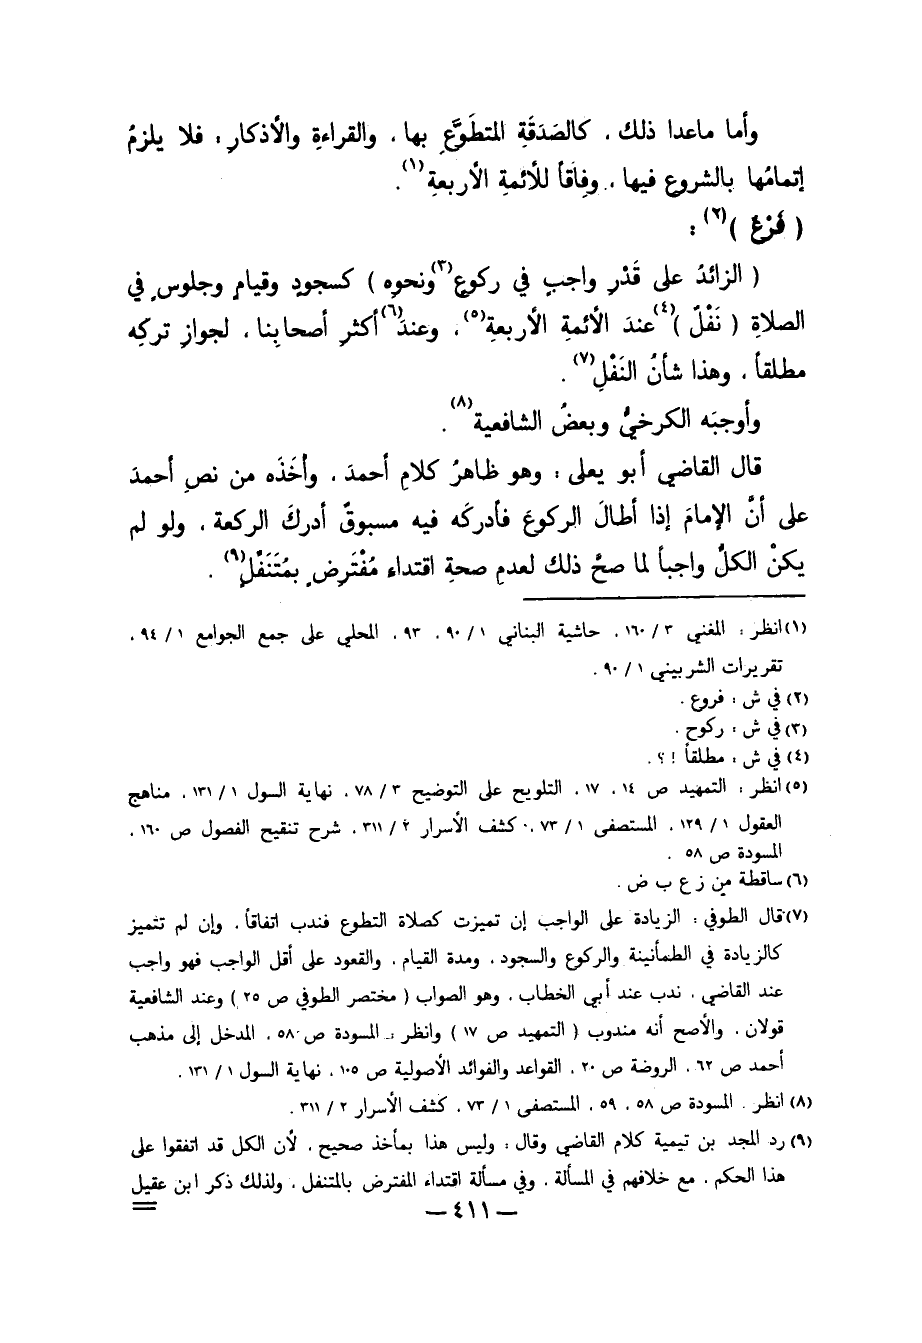 وأما ماعدا ذلك ، كالصَدَقَةِ المتطَوَّعِ بها ، والقراءةِ والأذكارِ : فلا يلزمُ
إتمامُها بالشروعِ فيها ، وفِاقاً للأئمةِ الأربعةِ(١) .
( فَرْعٌ )(٢) :
( الزائدُ على قَدْرِ واجبٍ في ركوعٍ(٣)ونحوِه ) كسجودٍ وقيامٍ وجلوسٍ في
الصلاةِ ( نَفْلٌ )(٤)عندَ الأئمةِ الأربعةِ(٥) ، وعندَ(٦)أكثرِ أصحابِنا ، لجوازِ تركِه
مطلقاً ، وهذا شأنُ النَفْلِ(٧) .
وأوجبَه الكرخيُّ وبعضُ الشافعيةِ(٨) .
قال القاضي أبو يعلى : وهو ظاهرُ كلامِ أحمدَ ، وأخَذَه من نصِ أحمدَ
على أنَّ الإمامَ إذا أطالَ الركوعَ فأدركَه فيه مسبوقٌ أدركَ الركعة ، ولو لم
يكنْ الكلُّ واجباً لما صحَّ ذلك لعدمِ صحةِ اقتداء مُفْتَرِضٍ بمُتَنَفِّلٍ(٩) .
(١) انظر : المغني ٣ / ١٦٠ ، حاشية البناني ١ / ٩٠ ، ٩٣ ، المحلي على جمع الجوامع ١ / ٩٤ ،
تقريرات الشربيني ١ / ٩٠ .
(٢) في ش : فروع .
(٣) في ش : ركوح .
(٤) في ش : مطلقاً ! ؟ .
(٥) انظر : التمهيد ص ١٤ ، ١٧ ، التلويح على التوضيح ٣ / ٧٨ ، نهاية السول ١ / ١٣١ ، مناهج
العقول ١ / ١٢٩ ، المستصفى ١ / ٧٣ ، كشف الأسرار ٢ / ٣١١ ، شرح تنقيح الفصول ص ١٦٠ ،
المسودة ص ٥٨ .
(٦) ساقطة من ز ع ب ض .
(٧) قال الطوفي : الزيادة على الواجب إن تميزت كصلاة التطوع فندب اتفاقاً ، وإن لم تتميز
كالزيادة في الطمأنينة والركوع والسجود ، ومدة القيام ، والقعود على أقل الواجب فهو واجب
عند القاضي ، ندب عند أبي الخطاب ، وهو الصواب ( مختصر الطوفي ص ٢٥ ) وعند الشافعية
قولان ، والأصح أنه مندوب ( التمهيد ص ١٧ ) وانظر : المسودة ص ٥٨ ، المدخل إلى مذهب
أحمد ص ٦٢ ، الروضة ص ٢٠ ، القواعد والفوائد الأصولية ص ١٠٥ ، نهاية السول ١ / ١٣١ .
(٨) انظر . المسودة ص ٥٨ ، ٥٩ ، المستصفى ١ / ٧٣ ، كشف الأسرار ٢ / ٣١١ .
(٩) رد المجد بن تيمية كلام القاضي وقال : وليس هذا بمأخذ صحيح ، لأن الكل قد اتفقوا على
هذا الحكم ، مع خلافهم في المسألة ، وفي مسألة اقتداء المفترض بالمتنفل ، ولذلك ذكر ابن عقيل
— ٤١١ —